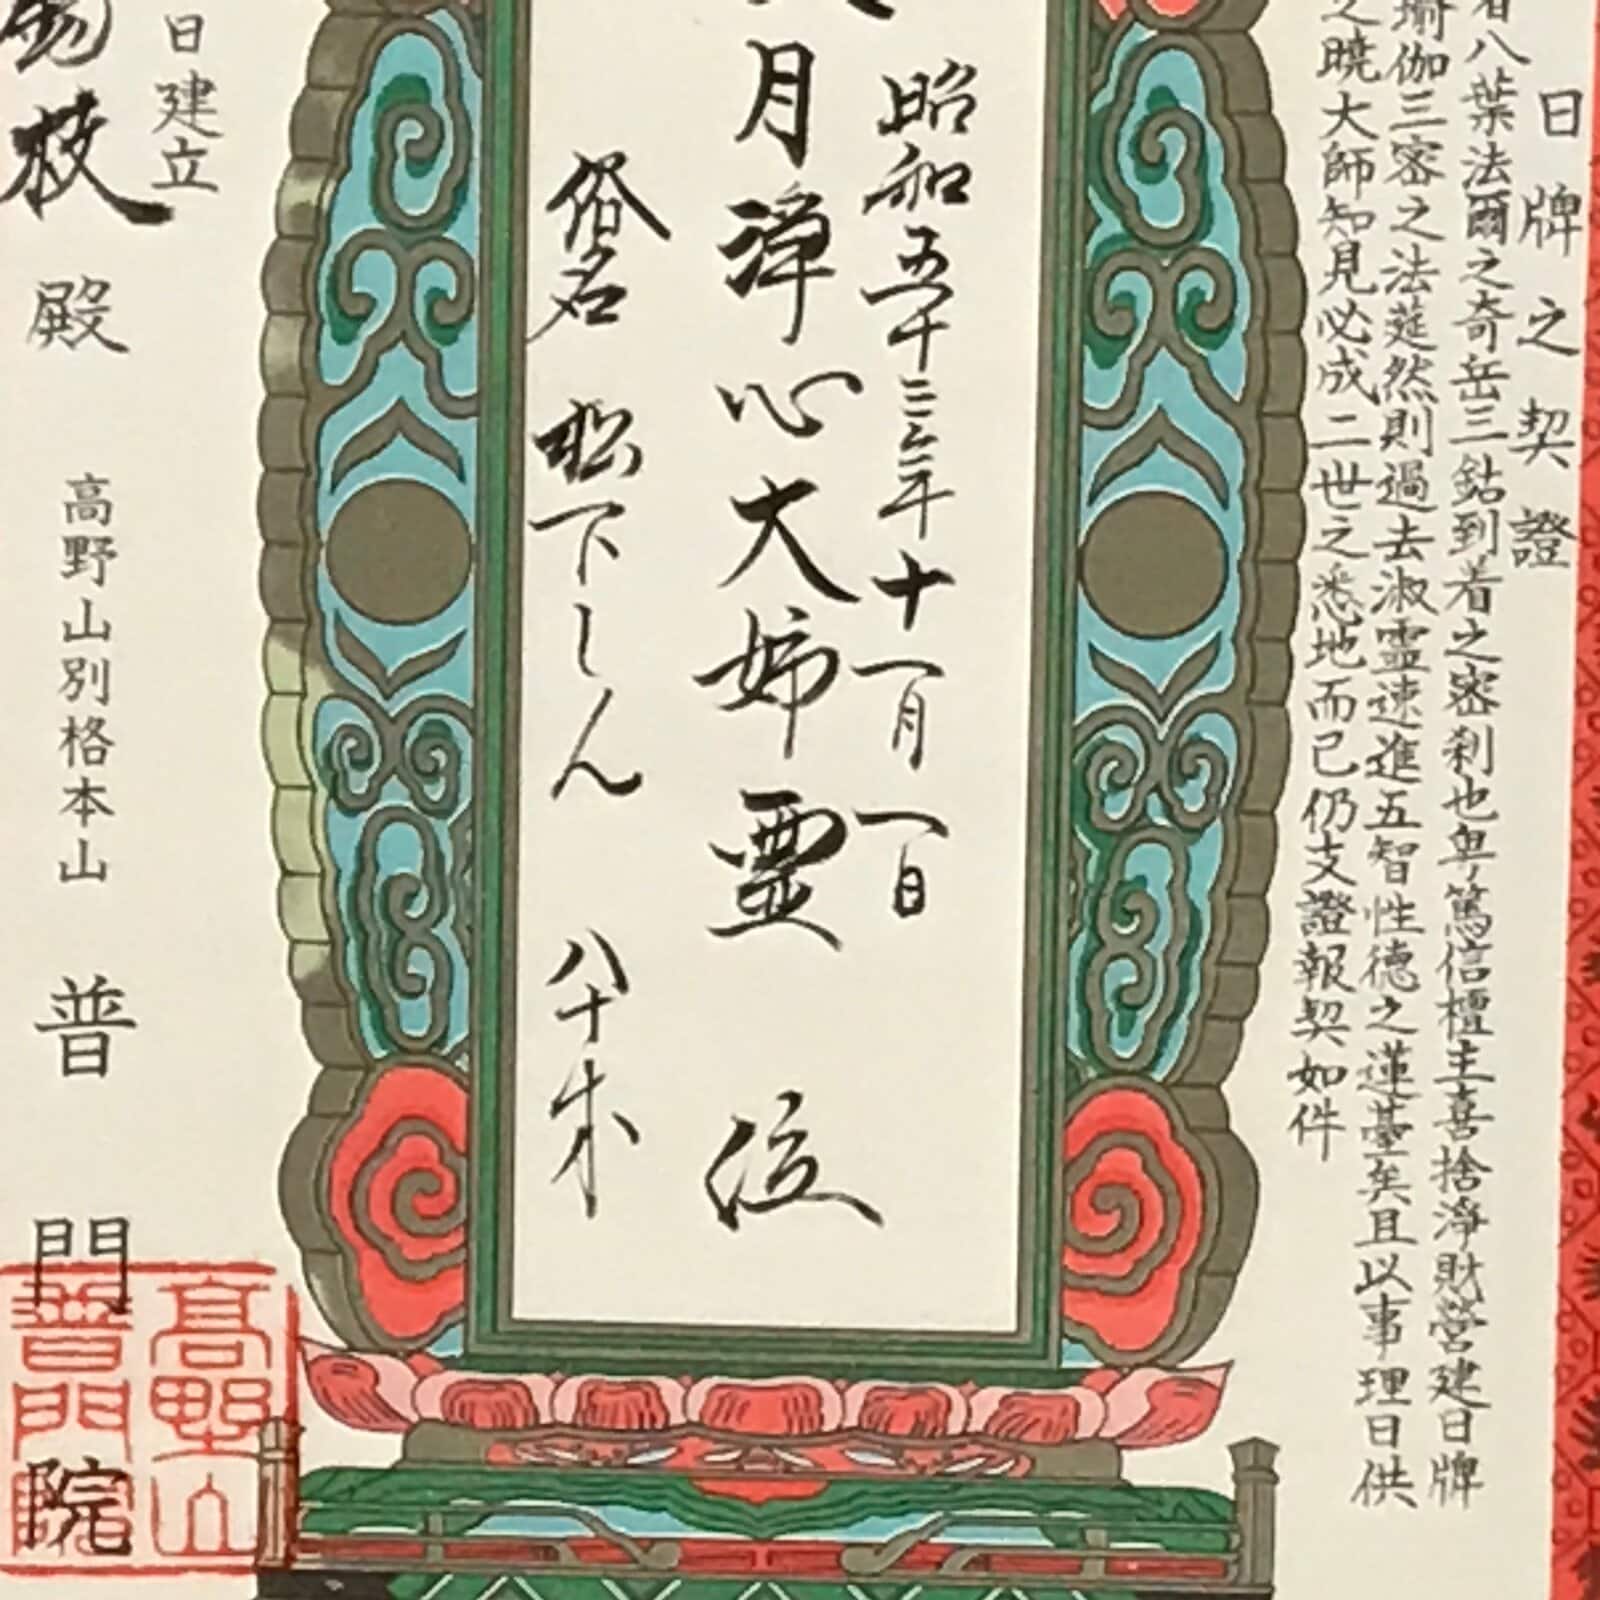 日牌之契證
者八葉法爾之奇岳三鈷到着之密刹也卑篤信檀主喜捨淨財營建日牌
瑜伽三密之法莚然則過去淑靈速進五智性德之蓮臺矣且以事理日供
之曉大師知見必成二世之悉地而已仍支證報契如件
昭和五十三年十一月一日
月禅心大姉霊位
俗名 松下しん 八十才
日建立
枝 殿
高野山別格本山 普門院
高野山
普門院